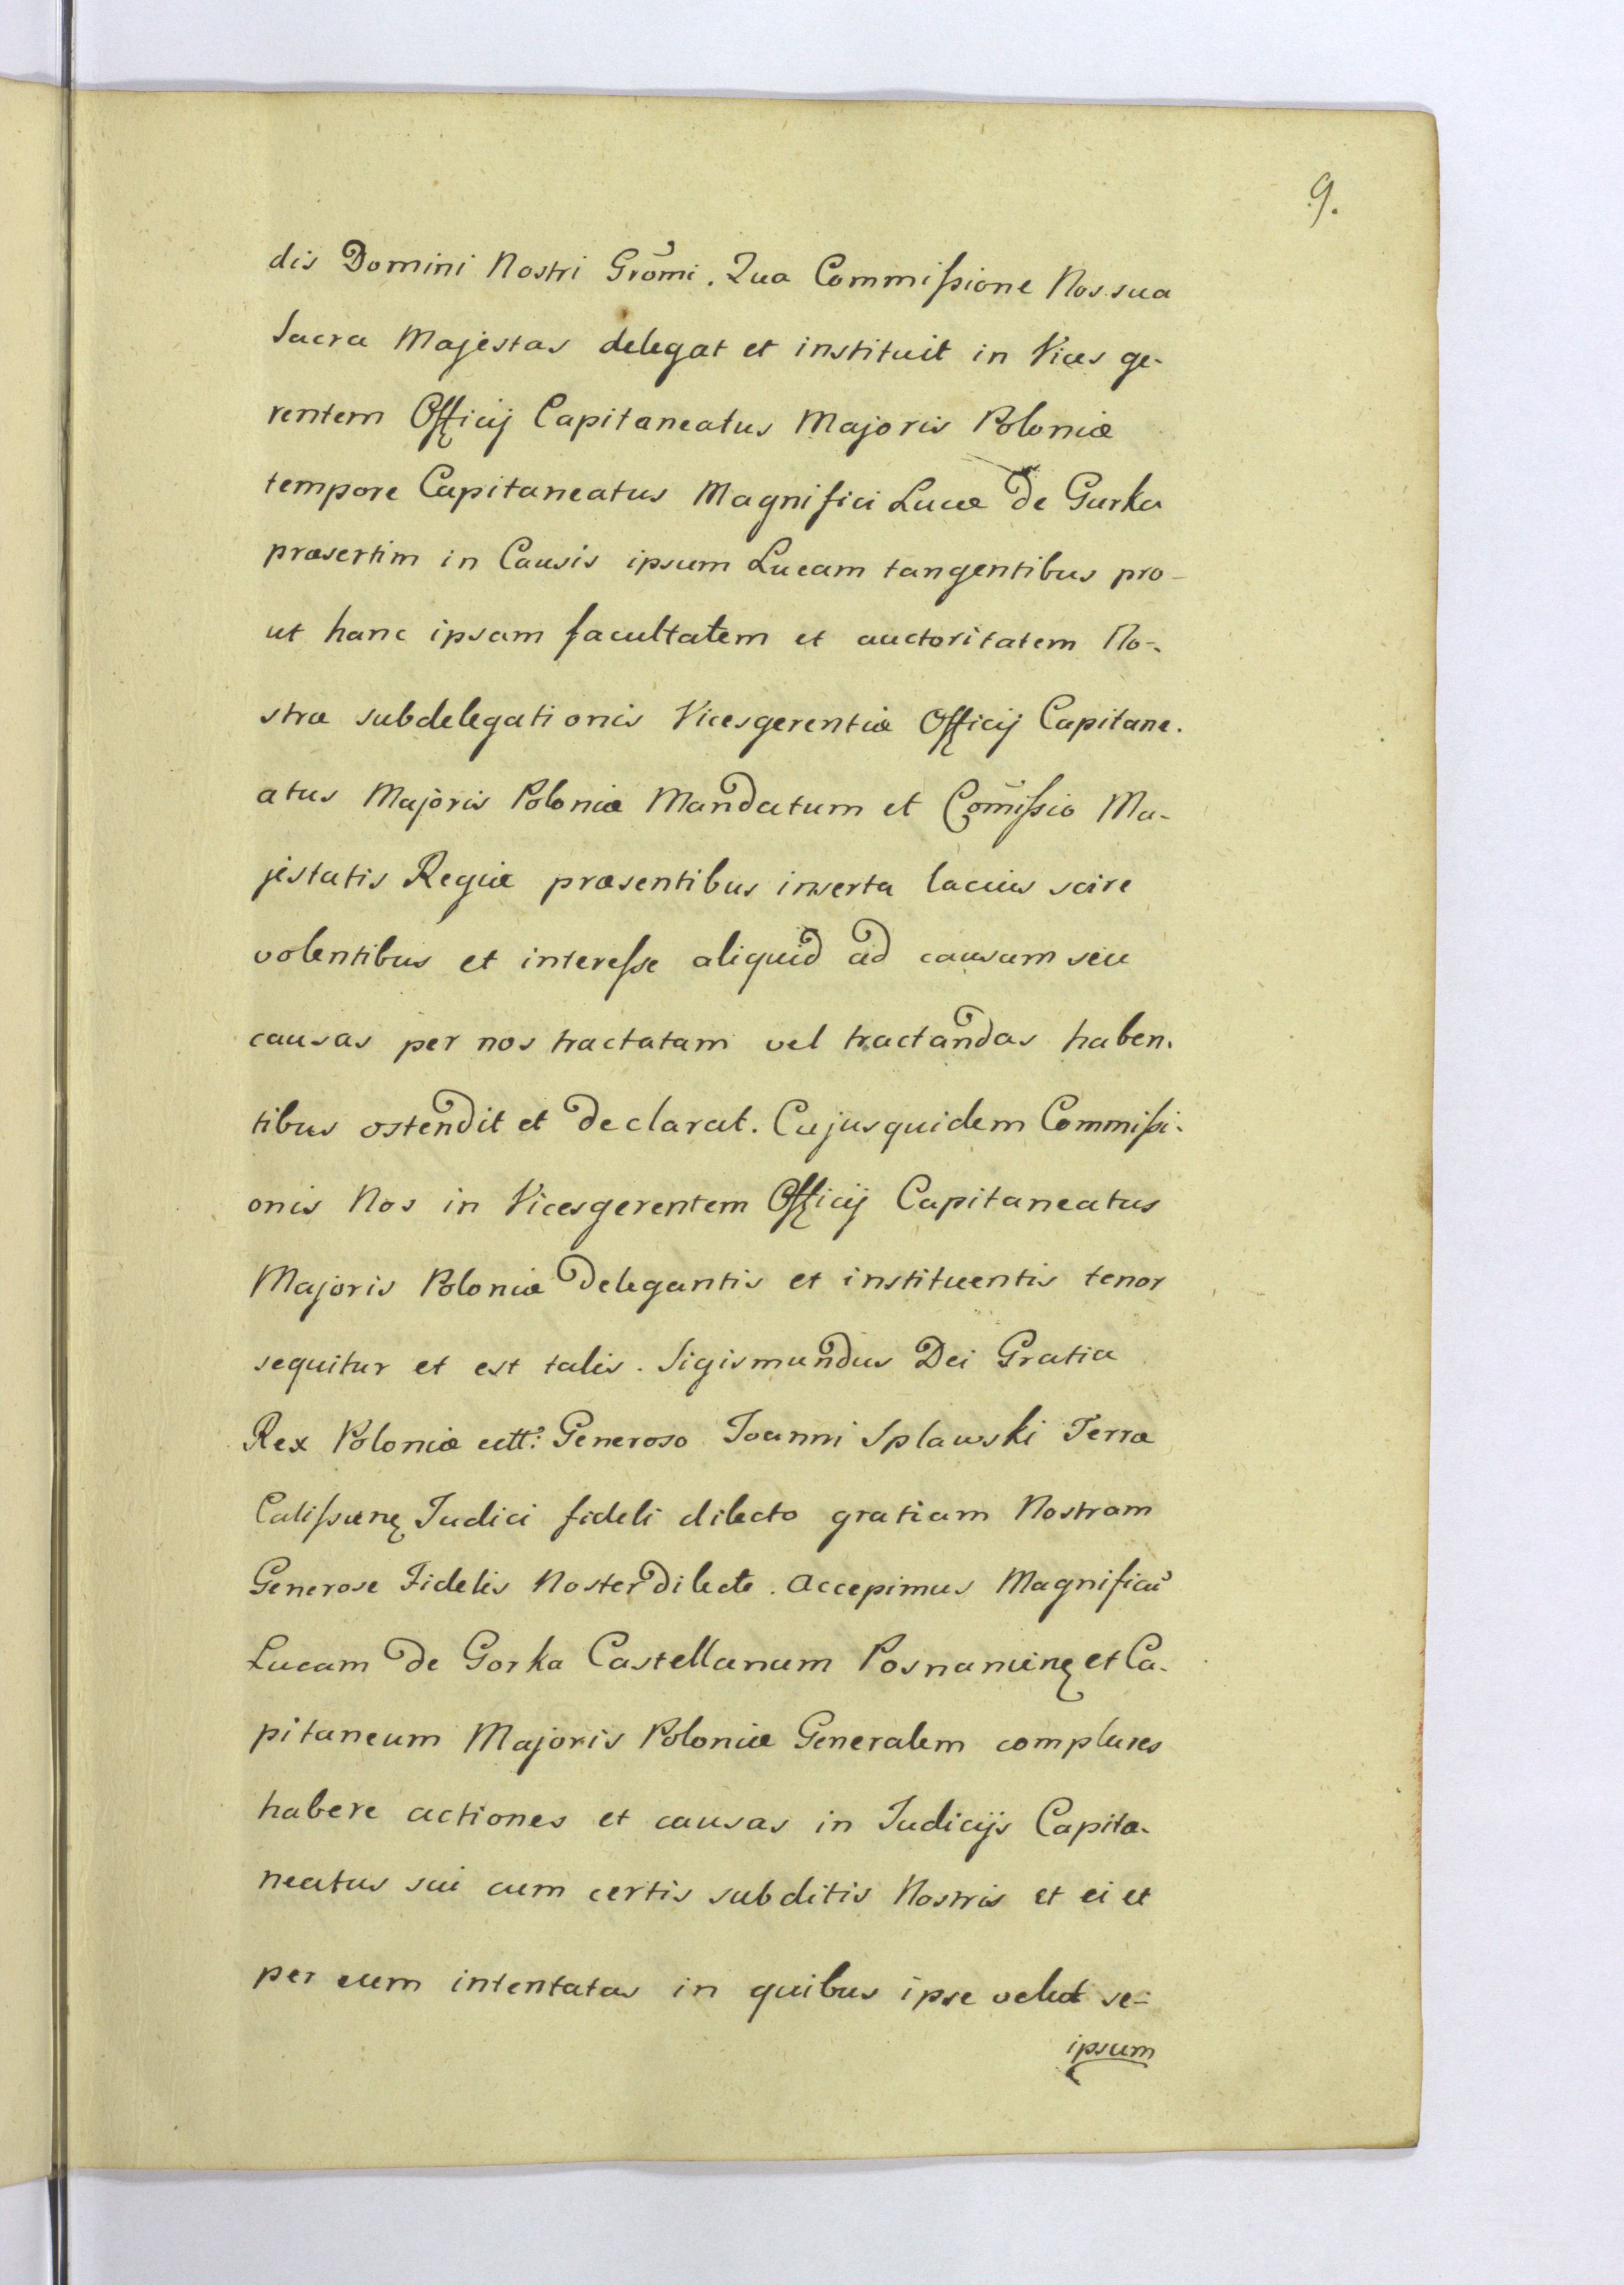 9.
dis Domini Nostri Grōmi. Qua Commissione Nos sua
Sacra Majestas delegat et instituit in Vices ge-
rentem Officij Capitaneatus Majoris Poloniæ
tempore Capitaneatus Magnifici Lucæ De Gurka
præsertim in Causis ipsum Lucam tangentibus pro-
ut hanc ipsam facultatem et auctoritatem No-
stræ subdelegationis Vicesgerentiæ Officij Capitane-
atus Majoris Poloniæ Mandatum et Com̄issio Ma-
jestatis Regiæ præsentibus inserta lacius scire
volentibus et interesse aliquid ad causam seu
causas per nos tractatam vel tractandas haben-
tibus ostendit et declarat. Cujusquidem Commissi-
onis Nos in Vicesgerentem Officij Capitaneatus
Majoris Poloniæ Delegantis et instituentis tenor
sequitur et est talis. Sigismundus Dei Gratia
Rex Poloniæ ett: Generoso Joanni Splawski Terræ
Calissienę Judici fideli dilecto gratiam Nostram
Generose Fidelis Noster Dilecte. Accepimus Magnificū
Lucam De Gorka Castellanum Posnanienę et Ca-
pitaneum Majoris Poloniæ Generalem complures
habere actiones et causas in Judicijs Capita-
neatus sui cum certis subditis Nostris et ei et
per eum intentatas in quibus ipse velut se-
ipsum